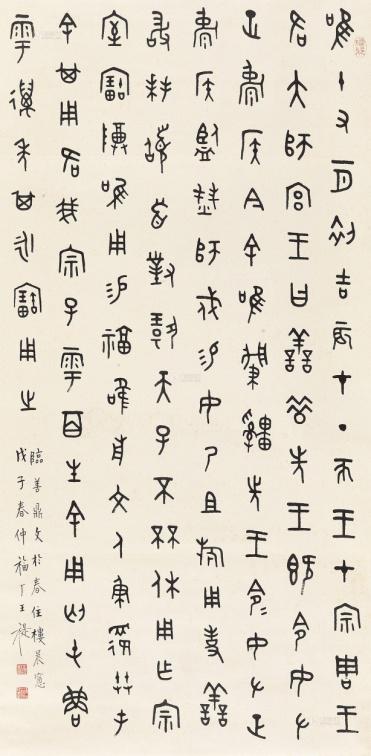 唯十又一月初吉辰才丁亥王才宗周王
各大師宮王曰善昔先王既令女左
疋𤲀侯今余唯肇𤕌先王令令女左疋
𤲀侯監豳師戍易女乃且旂用事善
敢拜𩒨首對揚皇天子不㔻休用乍宗
室寶尊唯用妥福唬前文人秉德共屯
余其用各我宗子雩百生余用匃屯魯
雩萬年其永寶用之
臨善鼎文於春住樓晨窗
戊子春仲福厂王禔